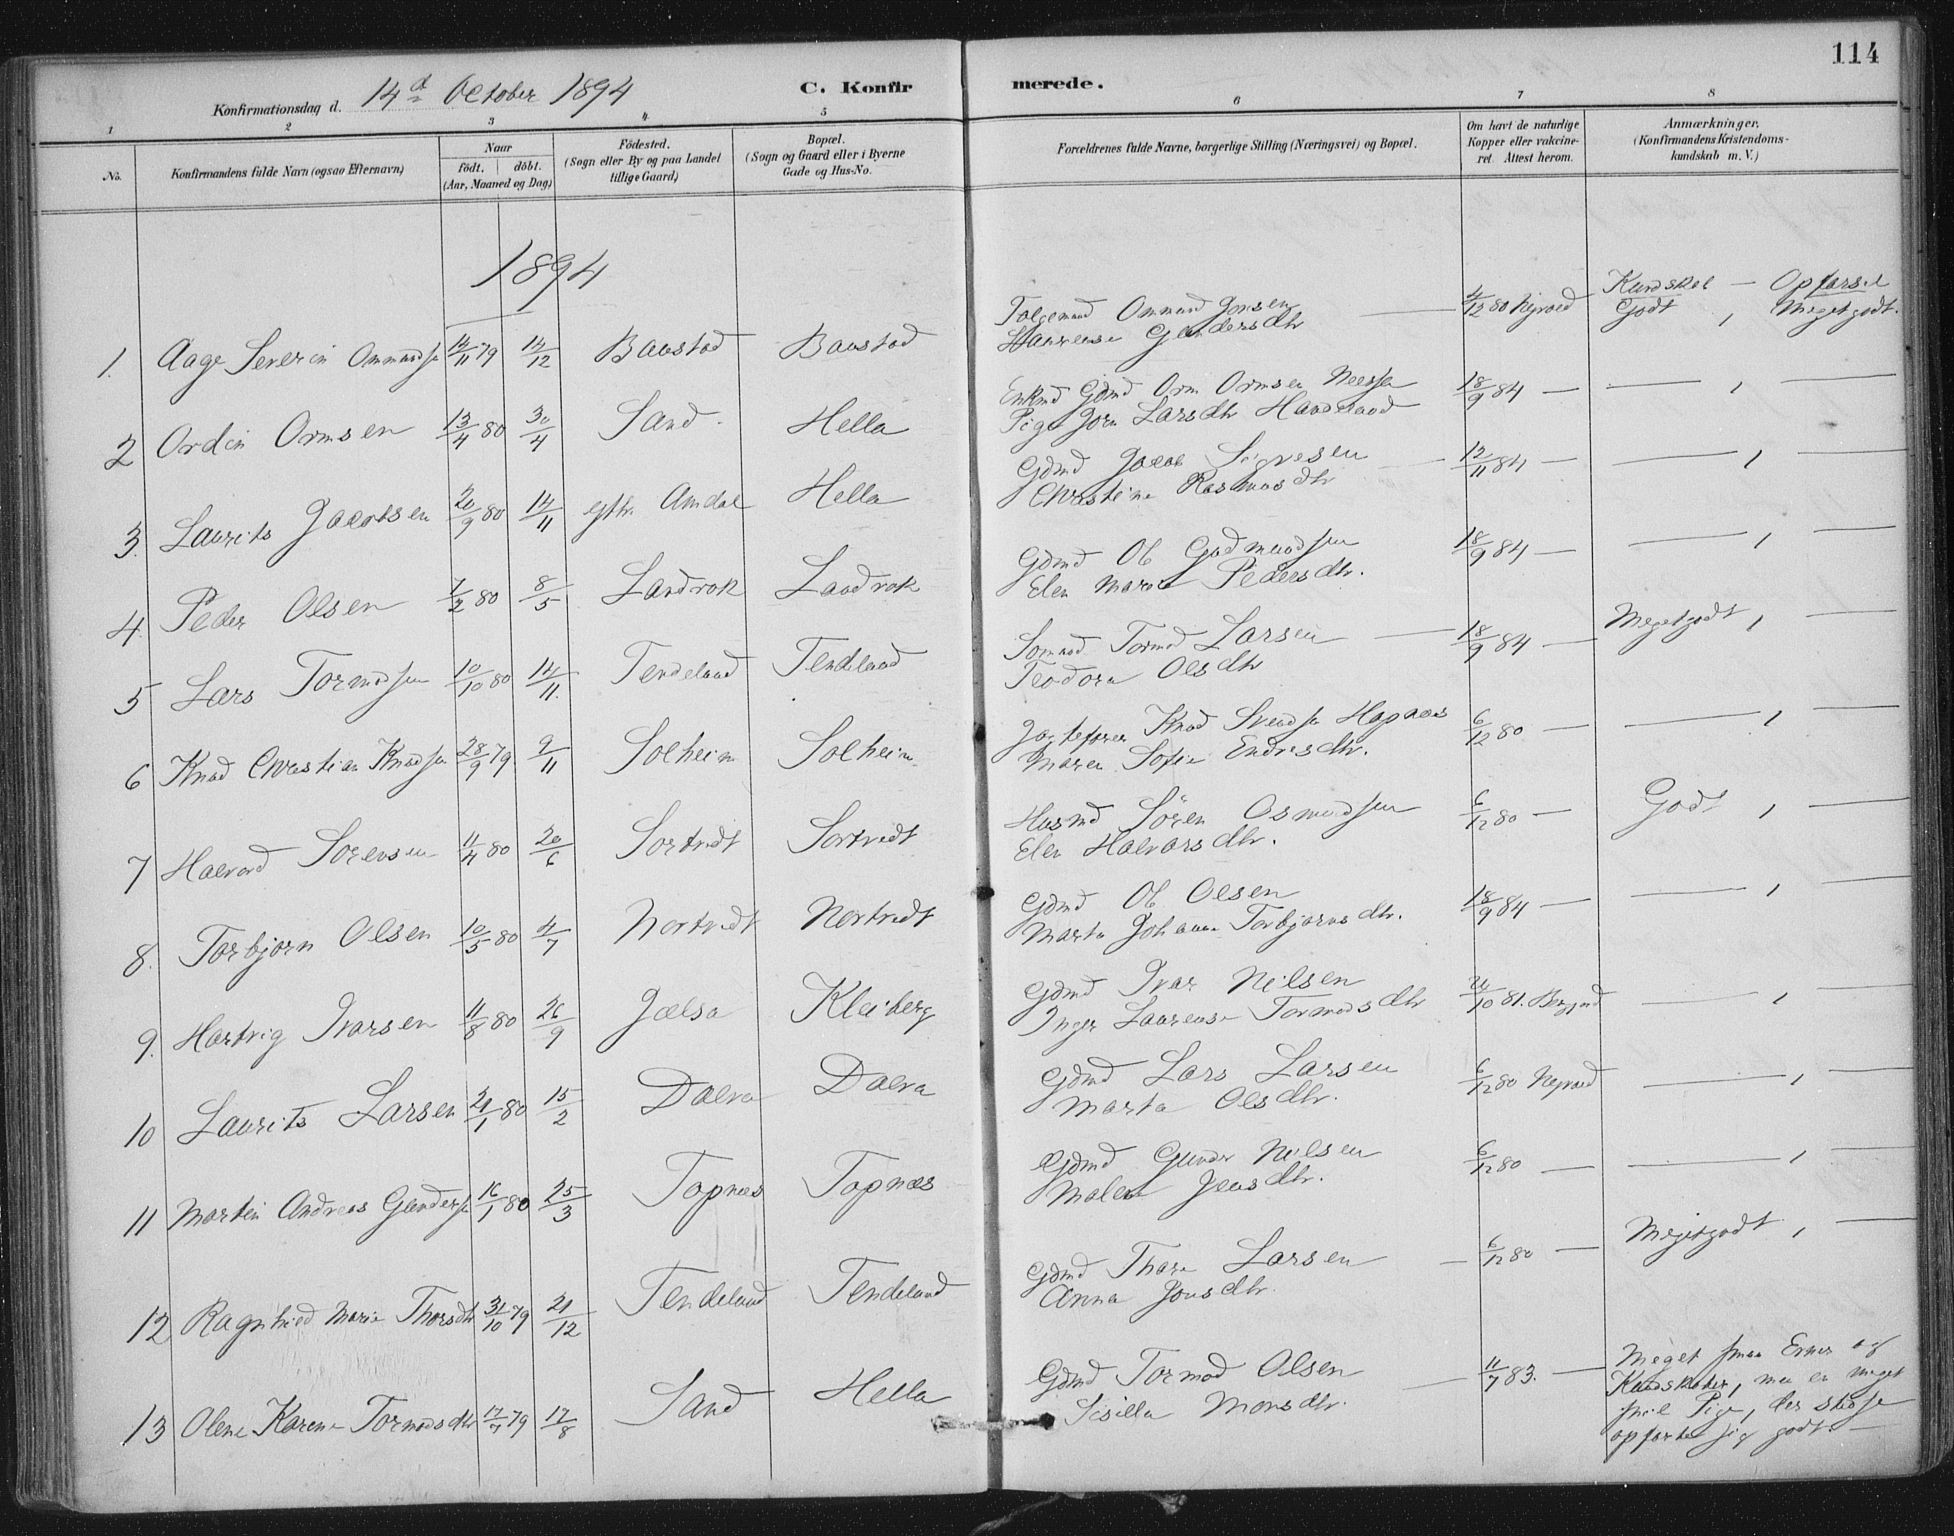 114
Konfirmationsdag d. 14d October 1894
C. Konfirmerede.
1 2 3 4 5 6 7 8
No. Konfirmandens fulde Navn (ogsaa Efternavn)
Naar födt. döbt. (Aar, Maaned og Dag)
Födested. (Sogn eller By og paa Landet tillige Gaard)
Bopæl. (Sogn og Gaard eller i Byerne Gade og Hus-No.
Forældrenes fulde Navne, borgerlige Stilling (Næringsvei) og Bopæl.
Om havt de naturlige Kopper eller vakcineret. Attest herom.
Anmærkninger. (Konfirmandens Kristendomskundskab m. V.)
1894
Kundskab — Opførsel
1. Aage Severin Ommundsen 14/11 79 14/12 Baustad Baustad Ommund Jonsen 4/12 80 Godt, Megetgodt.
2 Ordin Ormsen 13/4 80 30/4 Sand Hella Enkmd Gdmd Orm Ormsen 18/9 84 — — , —
Pige Larsdtr
3. Laurits Jacobsen 20/9 80 14/11 Amdal Hella Gdmd Jacob Sigvesen 12/11 84 — — , —
Christine Rasmusdtr
4. Peder Olsen 1/2 80 8/5 Landrok Landrok Gdmd Ol Gudmundsen 18/9 84 — — , —
Elen Marta Pedersdtr.
5 Lars Tormodsen 10/10 80 14/11 Tendeland Tendeland Tormod Larsen 18/9 84 — Megetgodt, —
Teodora Olsdtr
6 Knud Christian Knudsen 28/9 79 9/11 Solheim Solheim Knud Svendsen Hapnæs 6/12 80 — — , —
Maren Sofie Endresdtr.
7 Halvard Sørensen 11/4 80 20/6 Sortvedt Sortvedt Husmd Sören Osmundsen 6/12 80 — Godt, —
Elen Halvarsdtr.
8. Torbjørn Olsen 10/5 80 4/7 Nortvedt Nortvedt Gdmd Ol Olsen 18/9 84 — — , —
Marta Johanne Torbjørnsdtr.
9. Hartvig Ivarsen 11/8 80 26/9 Jælsa Kleiberg Gdmd Ivar Nilsen 24/10 81. — , —
Inger Laurense Tormodsdtr
10 Laurits Larsen 21/1 80 15/2 Dalva Dalva Gdmd Lars Larsen 6/12 80 — , —
Marta Olsdtr.
11 Martin Andreas Gundersen 16/1 80 25/3 Topnæs Topnæs Gdmd Gunder Nilsen 6/12 80 — — , —
Malene Jensdtr.
12 Ragnhild Marie Thorsdtr 31/10 79 21/12 Tendeland Tendeland Gdmd Thore Larsen 6/12 80 — Megetgodt, —
Anna Jonsdtr.
13 Olene Karine Tormodsdtr 17/7 79 17/8 Sand Hella Gdmd Tormod Olsen 11/7 83. — Meget smaa Evner og
Sisilla Monsdtr. Kundskaber, men en meget
snil Pige, der
opførte sig godt —